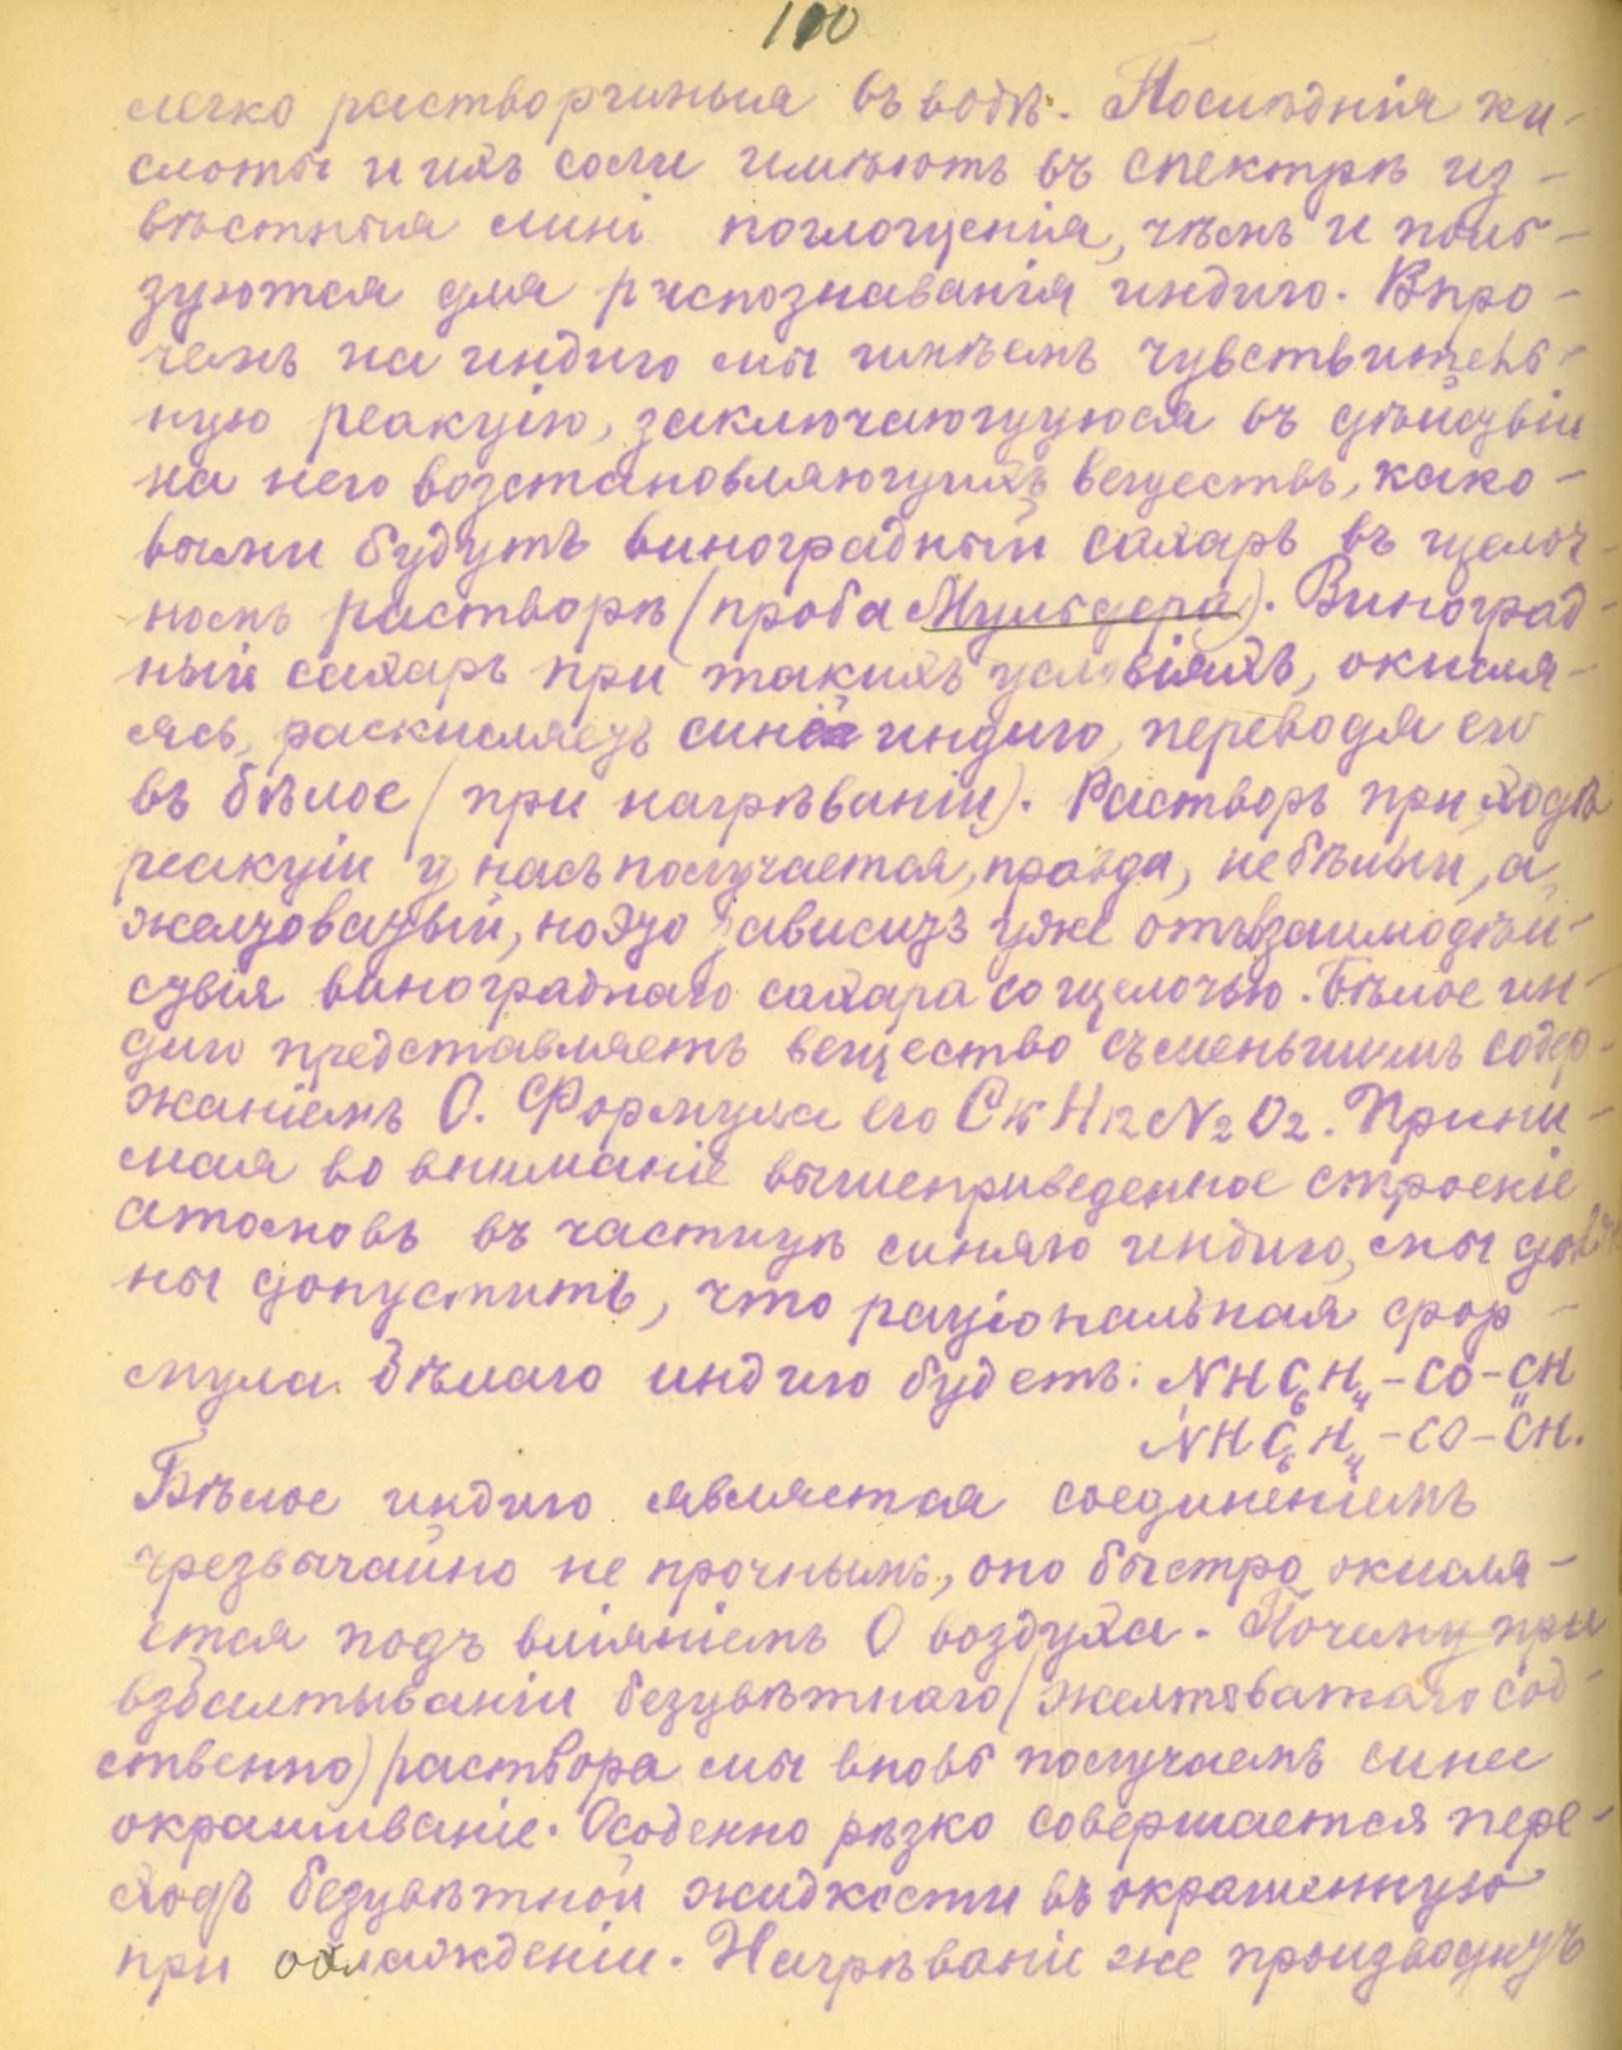 100
легко растворимыя въ водѣ. Послѣднія ки-
слоты и ихъ соли имѣютъ въ спектрѣ из-
вѣстныя лині поглощенія, чѣмъ и поль-
зуются для распознаванія индиго. Впро-
чемъ на индиго мы имѣемъ чувствитель-
ную реакцію, заключающуюся въ дѣйствіи
на него возстановляющихъ веществъ, како-
выми будутъ виноградный сахаръ въ щелоч-
номъ растворѣ (проба Мульдера). Виноград-
ный сахаръ при такихъ условіяхъ, окисля-
ясь, раскисляетъ синее индиго, переводя его
въ бѣлое (при нагрѣваніи). Растворъ при ходѣ
реакціи у насъ получается, правда, не бѣлый, а
желтоватый, но это зависитъ уже отъ взаимодѣй-
ствія винограднаго сахара со щелочью. Бѣлое ин-
диго представляетъ вещество съ меньшимъ содер-
жаніемъ О. Формула его C16H12N2O2. Прини-
мая во вниманіе вышеприведенное строеніе
атомовъ въ частицѣ синяго индиго, мы долж
ны допустить, что раціональная фор-
мула бѣлаго индиго будетъ: NHC6H4-CO-CH
NHC6H4-CO-CH.
Бѣлое индиго является соединеніемъ
чрезвычайно не прочнымъ, оно быстро окисля-
ется подъ вліяніемъ О воздуха. Почему при
взбалтываніи безцвѣтнаго (желтоватаго соб-
ственно) раствора мы вновь получаемъ синее
окрашиваніе. Особенно рѣзко совершается пере-
ходъ безцвѣтной жидкости въ окрашенную
при охлажденіи. Нагрѣваніе же производитъ